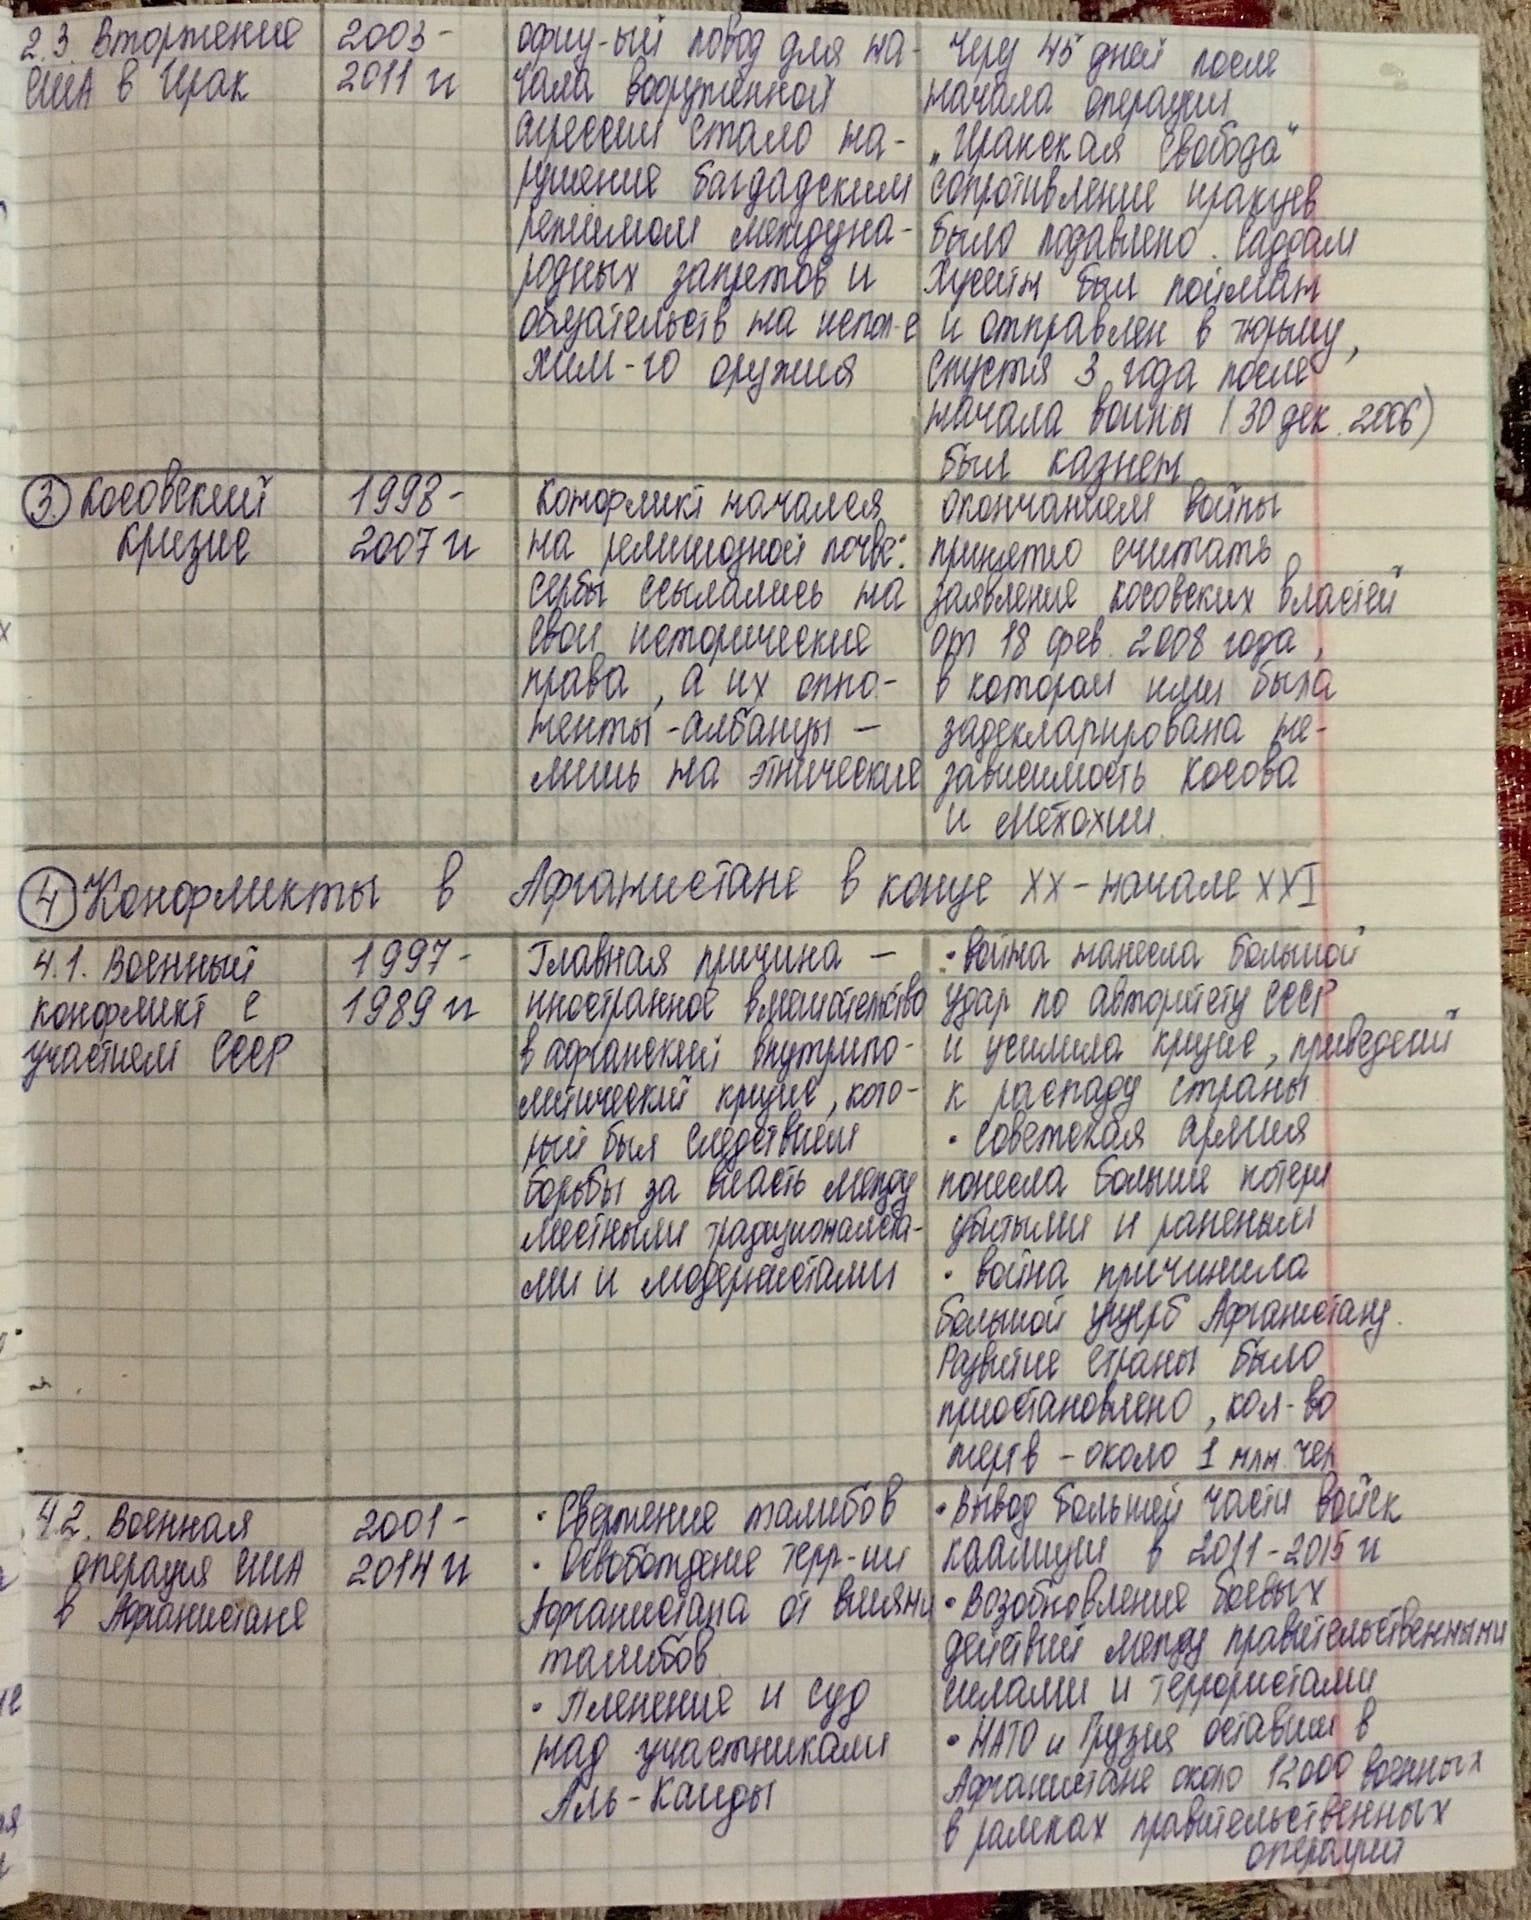 2.3. Вторжение
США в Ирак
2003-
2011 гг
офиц-ый повод для на-
чала вооружённой
агрессии стало на-
рушение багдадским
режимом междуна-
родных запретов и
обязательств на испол-е
хим-го оружия
Через 45 дней после
начала операции
„Иракская свобода"
сопротивление иракцев
было подавлено. Саддам
Хусейн был пойман
и отправлен в тюрьму,
спустя 3 года после
начала войны (30 дек. 2006)
был казнен
3 Косовский
кризис
1998-
2007 гг
Конфликт начался
на религиозной почве:
сербы ссылались на
свои исторические
права, а их оппо-
ненты-албанцы —
лишь на этнические
окончанием войны
принято считать
заявление косовских властей
от 18 фев. 2008 года,
в котором ими была
задекларирована не-
зависимость Косова
и Метохии.
4 Конфликты в Афганистане в конце XX - начале XXI
4.1. Военный
конфликт с
участием СССР
1997-
1989 гг
Главная причина —
иностранное вмешательство
в афганский внутрипо-
литический кризис, кото-
рый был следствием
борьбы за власть между
местными традиционалиста-
ми и модернистами
• война нанесла большой
удар по авторитету СССР
и усилила кризис, приведший
к распаду страны
• советская армия
понесла большие потери
убитыми и ранеными
• война причинила
большой ущерб Афганистану.
Развитие страны было
приостановлено, кол-во
жертв - около 1 млн. чел
4.2. Военная
операция США
в Афганистане
2001-
2014 гг
• Свержение талибов
• Освобождение терр-ии
Афганистана от влияни
талибов.
• Пленение и суд
над участниками
Аль-Каиды
• Вывод большей части войск
каалиции в 2011-2015 гг
• Возобновление боевых
действий между правительственными
силами и террористами
• НАТО и Грузия оставили в
Афганистане около 12000 военных
в рамках правительственных
операций